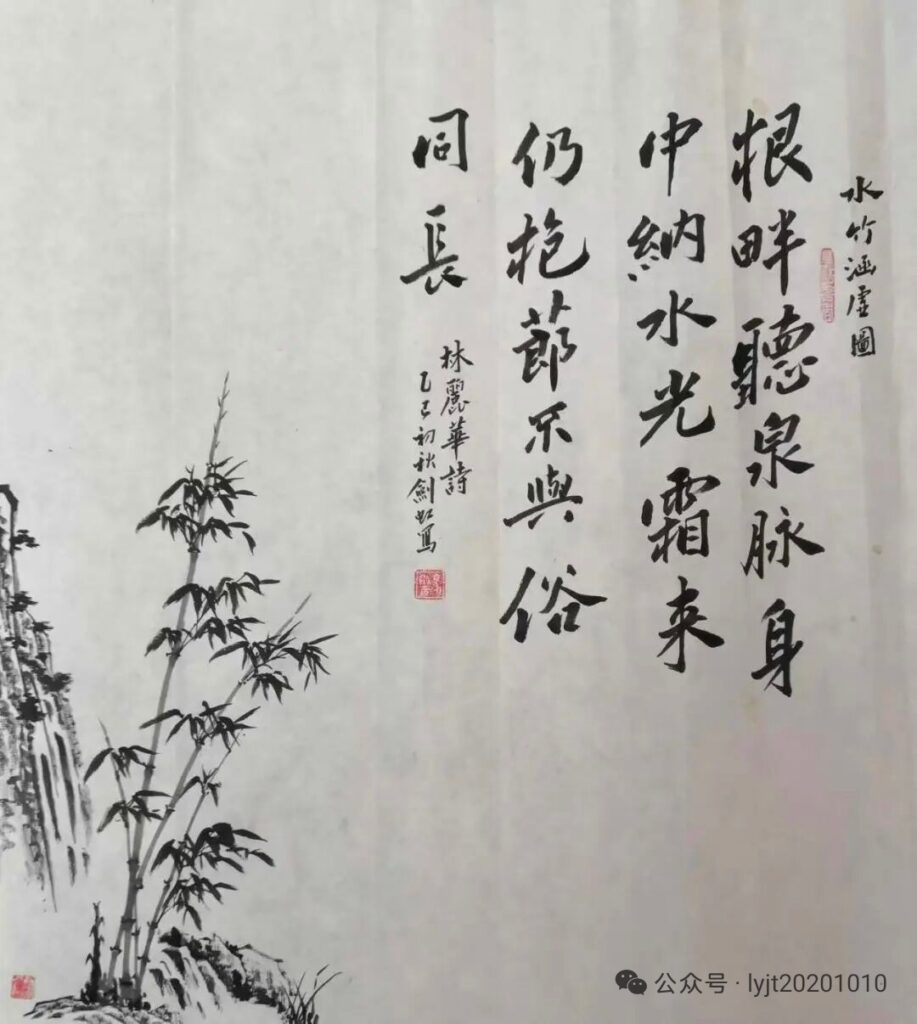 水竹涵虛圖
根畔聽泉脉身
中納水光霜来
仍抱莭不與俗
同長
林麗華詩
乙巳初秋劍虹寫
公众号·lyjt20201010